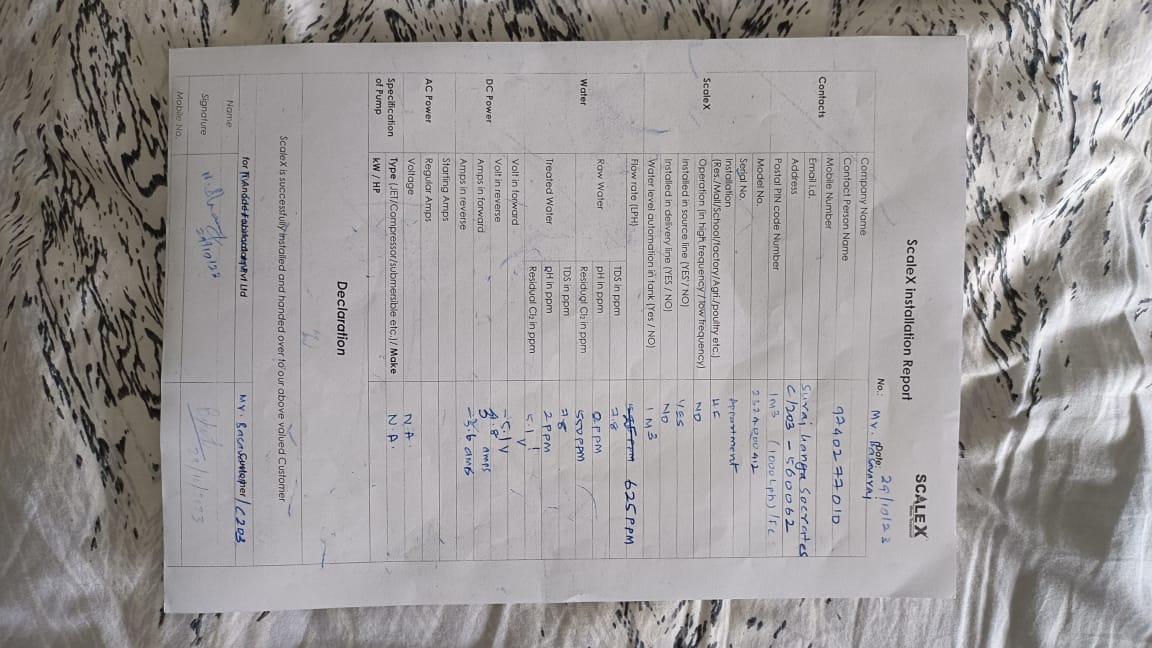 SCALEX
ScaleX installation Report
No.: Date: 29/10/23
Mr. Basavaraj
Company Name
Contact Person Name
Mobile Number 9740277010
Contacts Email i.d.
Address Suraj Ganga Socrates
C/203 - 560062
Postal PIN code Number
Model No. 1M3 (1000 Lph)
Serial No.
ScaleX Installation (Res./Mall/School/factory/Agri./poultry etc.) Apartment
Operation (in high frequency / low frequency) HF
Installed in source line (YES / NO) NO
Installed in delivery line (YES / NO) YES
Water level automation in tank (Yes / NO) NO
Flow rate (LPH) 1 M3
Water Raw Water TDS in ppm 625 PPM
pH in ppm 7.8
Residual Cl2 in ppm 0 PPM
Treated Water TDS in ppm 550 PPM
pH in ppm 7.8
Residual Cl2 in ppm 2 PPM
DC Power Volt in forward 5.1 V
Volt in reverse -5.1 V
Amps in forward amps
Amps in reverse -3.6 amps
AC Power Starting Amps
Regular Amps
Voltage N.A.
Specification of Pump Type (JET/Compressor/submersible etc.)/ Make N.A.
kW / HP
Declaration
ScaleX is successfully installed and handed over to our above valued Customer
for Pvt Ltd Customer / C203
Name
Signature 29/10/23
Mobile No.